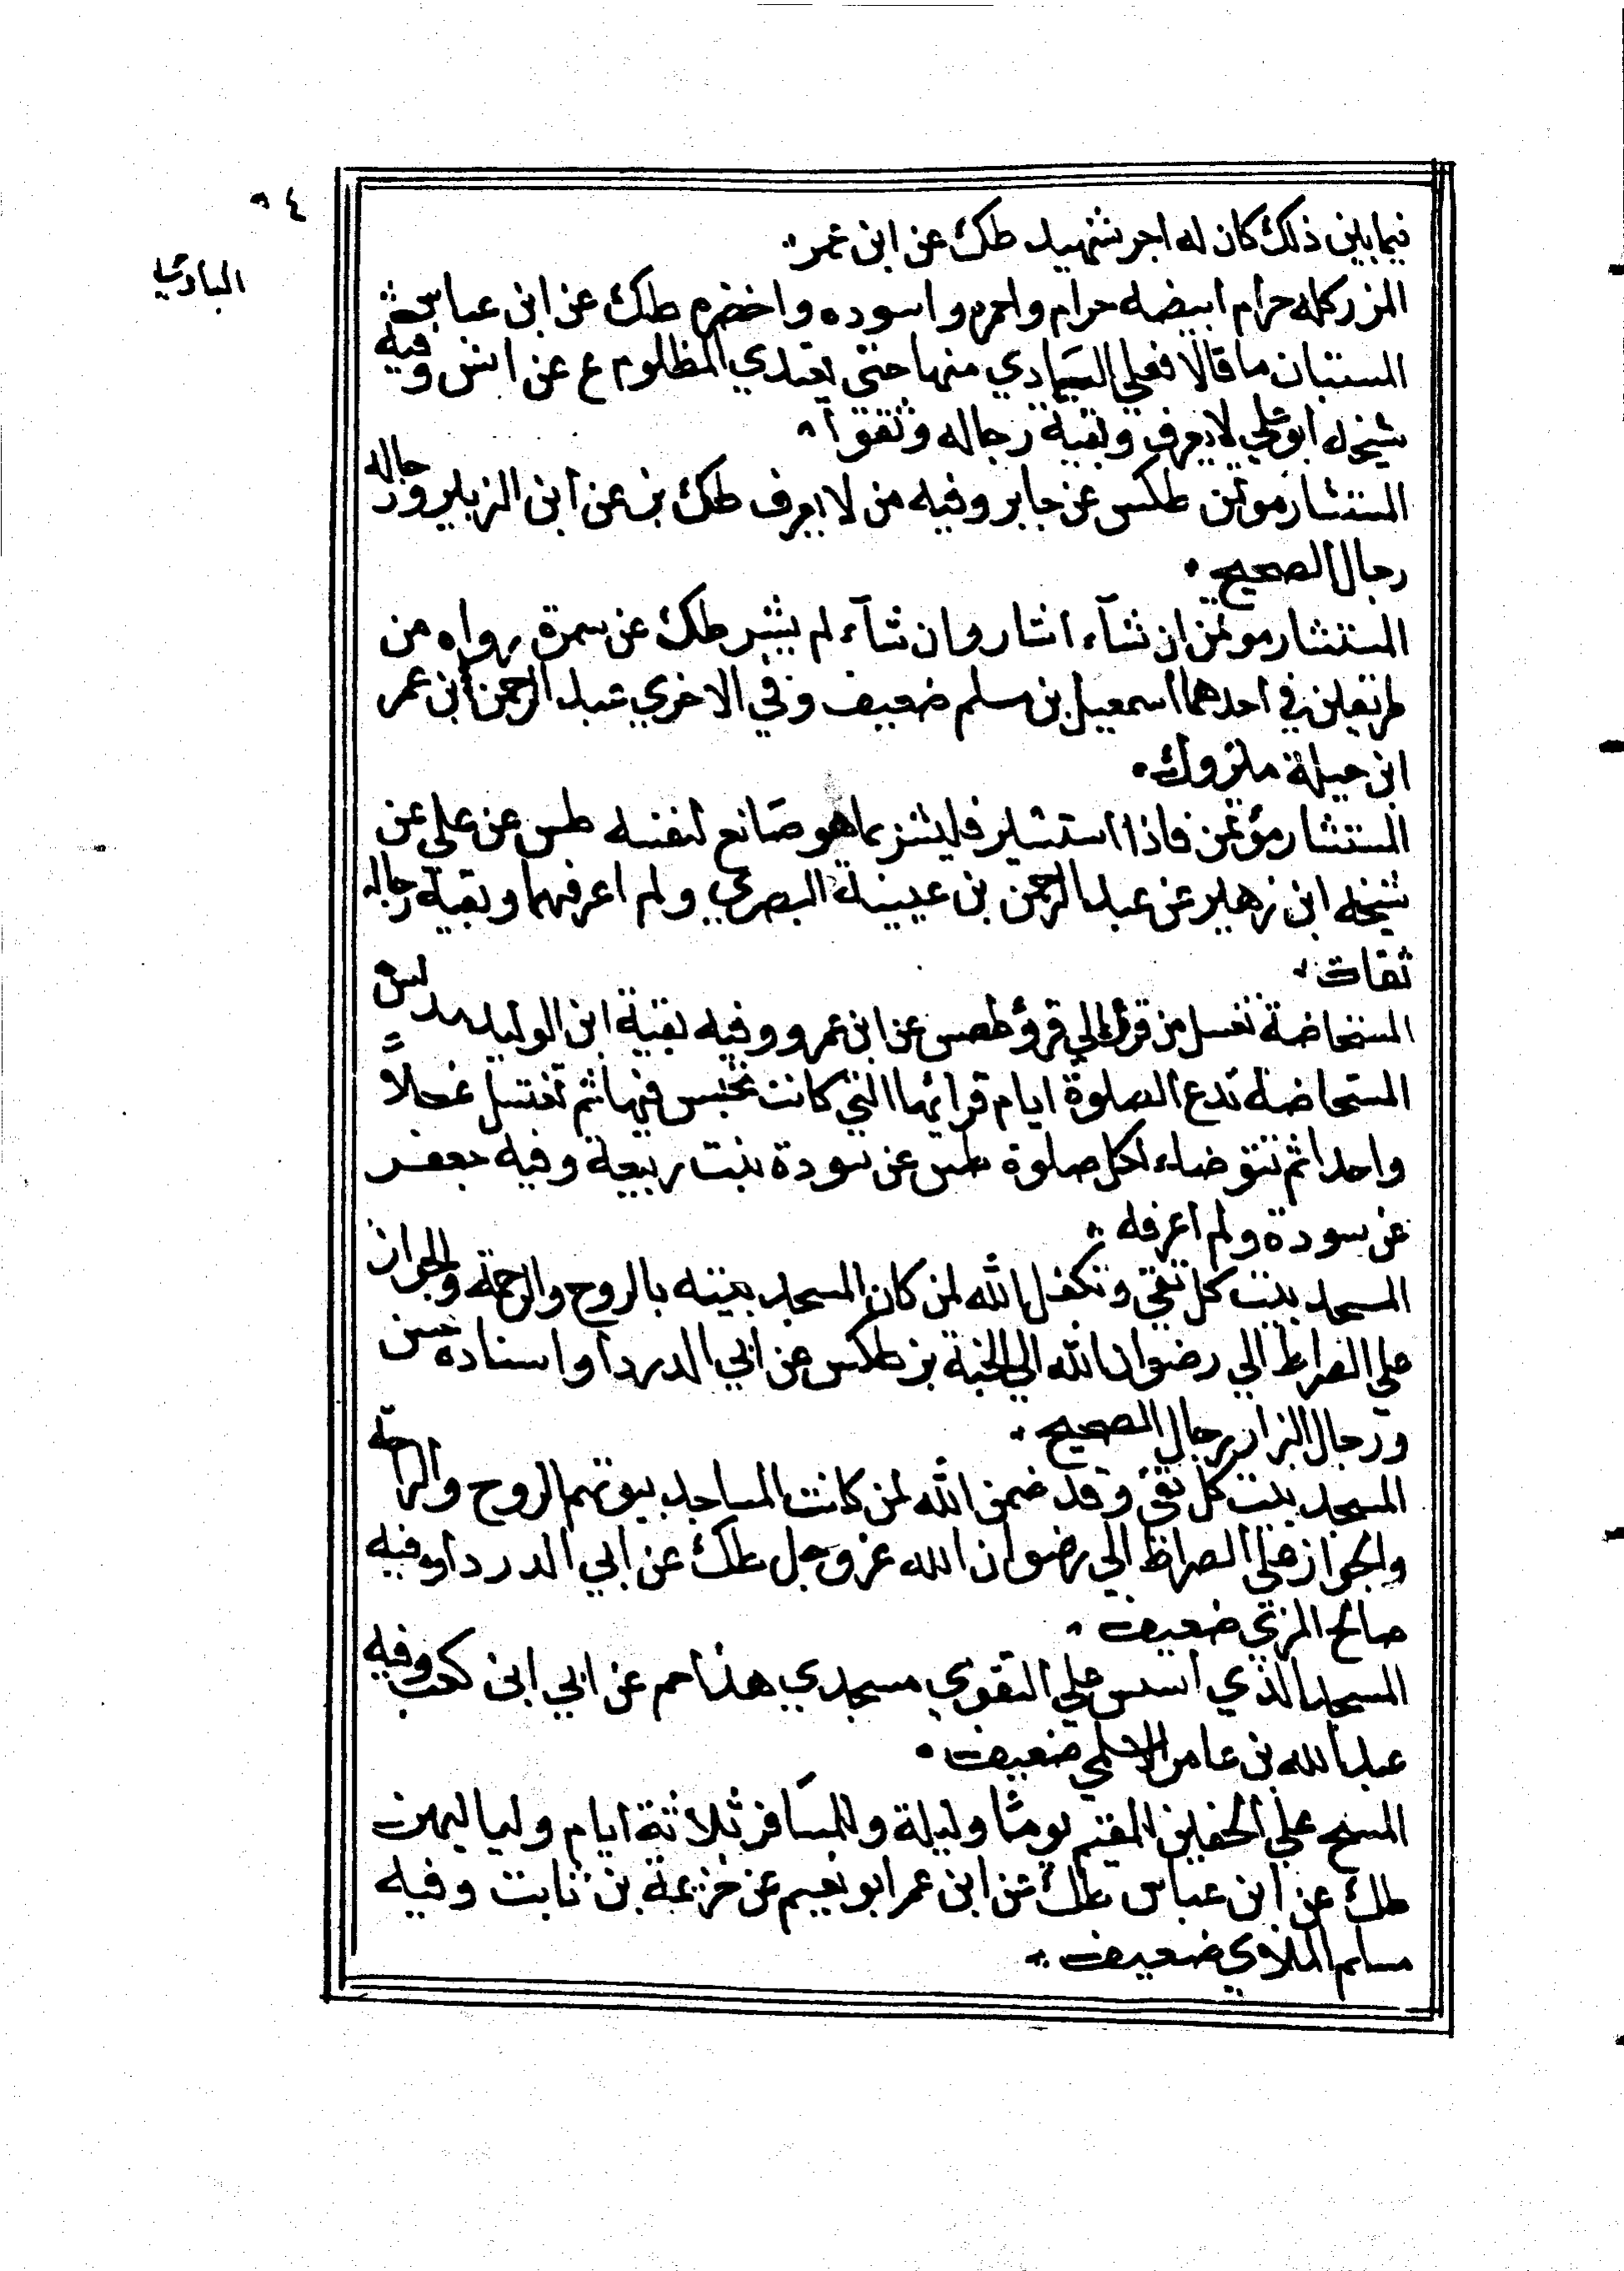 ٥٤
البادي
فيما بين ذلك كان له اجر شهيد طك عن ابن عمر
المزر كله حرام ابيضه حرام واحمره واسوده واخضره طك عن ابن عباس
المستبان ما قالا فعلي البادي منهما حتى يعتدي المظلوم ع عن انس وفيه
شيخه ابو علي لا يعرف وبقية رجاله وثقوا
المستشار موتمن طكس عن جابر وفيه من لا يعرف طك بز عن ابن الزبير ورجاله
رجال الصحيح
المستشار موتمن ان شآء اشار وان شآء لم يشير طك عن سمرة رواه من
طريقين في احدهما اسمعيل بن مسلم ضعيف وفي الاخري عبد الرحمن ابن عمر
ابن جبلة متروك
المستشار مؤتمن فاذا استشير فليشر بما هو صانع لنفسه طس عن علي عن
شيخه ابن زهير عن عبد الرحمن بن عيينة البصري ولم اعرفهما وبقية رجاله
ثقات
المستحاضة تغسل من قرؤ الي قرؤ طصس عن ابن عمرو وفيه بقية ابن الوليد مدلس
المستحاضة تدع الصلوة ايام قرائها التي كانت تحبس فيها ثم تغتسل غسلاً
واحدا ثم تتوضاء لكل صلوة طس عن سودة بنت ربيعة وفيه جعفر
عن سودة ولم اعرفه
المسجد بيت كل تقي وتكفل الله لمن كان المسجد بيته بالروح والرحمة والجواز
علي الصراط الي رضوان الله الي الجنة بز طكس عن ابي الدردا واسناده حسن
ورجال البزار رجال الصحيح
المسجد بيت كل تقي وقد ضمن الله لمن كانت المساجد بيوتهم الروح والراحة
والجواز علي الصراط الي رضوان الله عز وجل طك عن ابي الدرداء وفيه
صالح المري ضعيف
المسجد الذي اسس علي التقوي مسجدي هذا حم عن ابي ابن كعب وفيه
عبد الله بن عامر الاسلمي ضعيف
المسح علي الخفين للمقيم يوما وليلة وللمسافر ثلاثة ايام ولياليهن
طك عن ابن عباس طك عن ابن عمر ابو نعيم عن خزيمة بن ثابت وفيه
مسلم الملاوي ضعيف